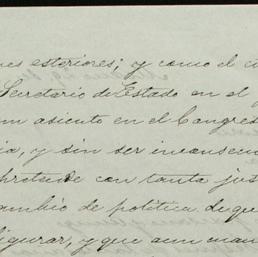 nes esteriores; y como el c
Secretario de Estado en el
un asiento en el Congres
ia, y sin ser inconsecu
pretende con tanta jus
ambio de política, de que
figurar, y que aun man